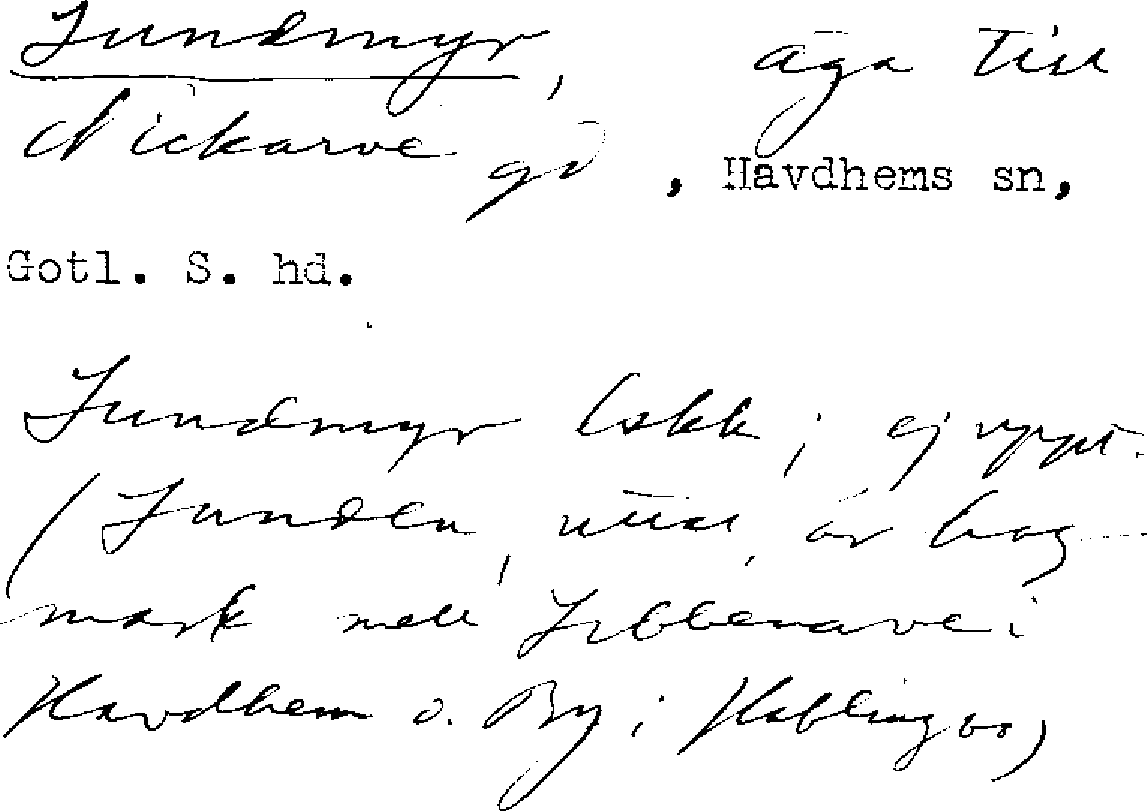 Lundmyr, äga till
Nickarve gd, Havdhems sn,
Gotl. S. hd.
Lundmyr bskk; ej uppt.
(Lunden, utt., är hag-
mark mell Libbenarve i
Havdhem o. By i Hablingbo)